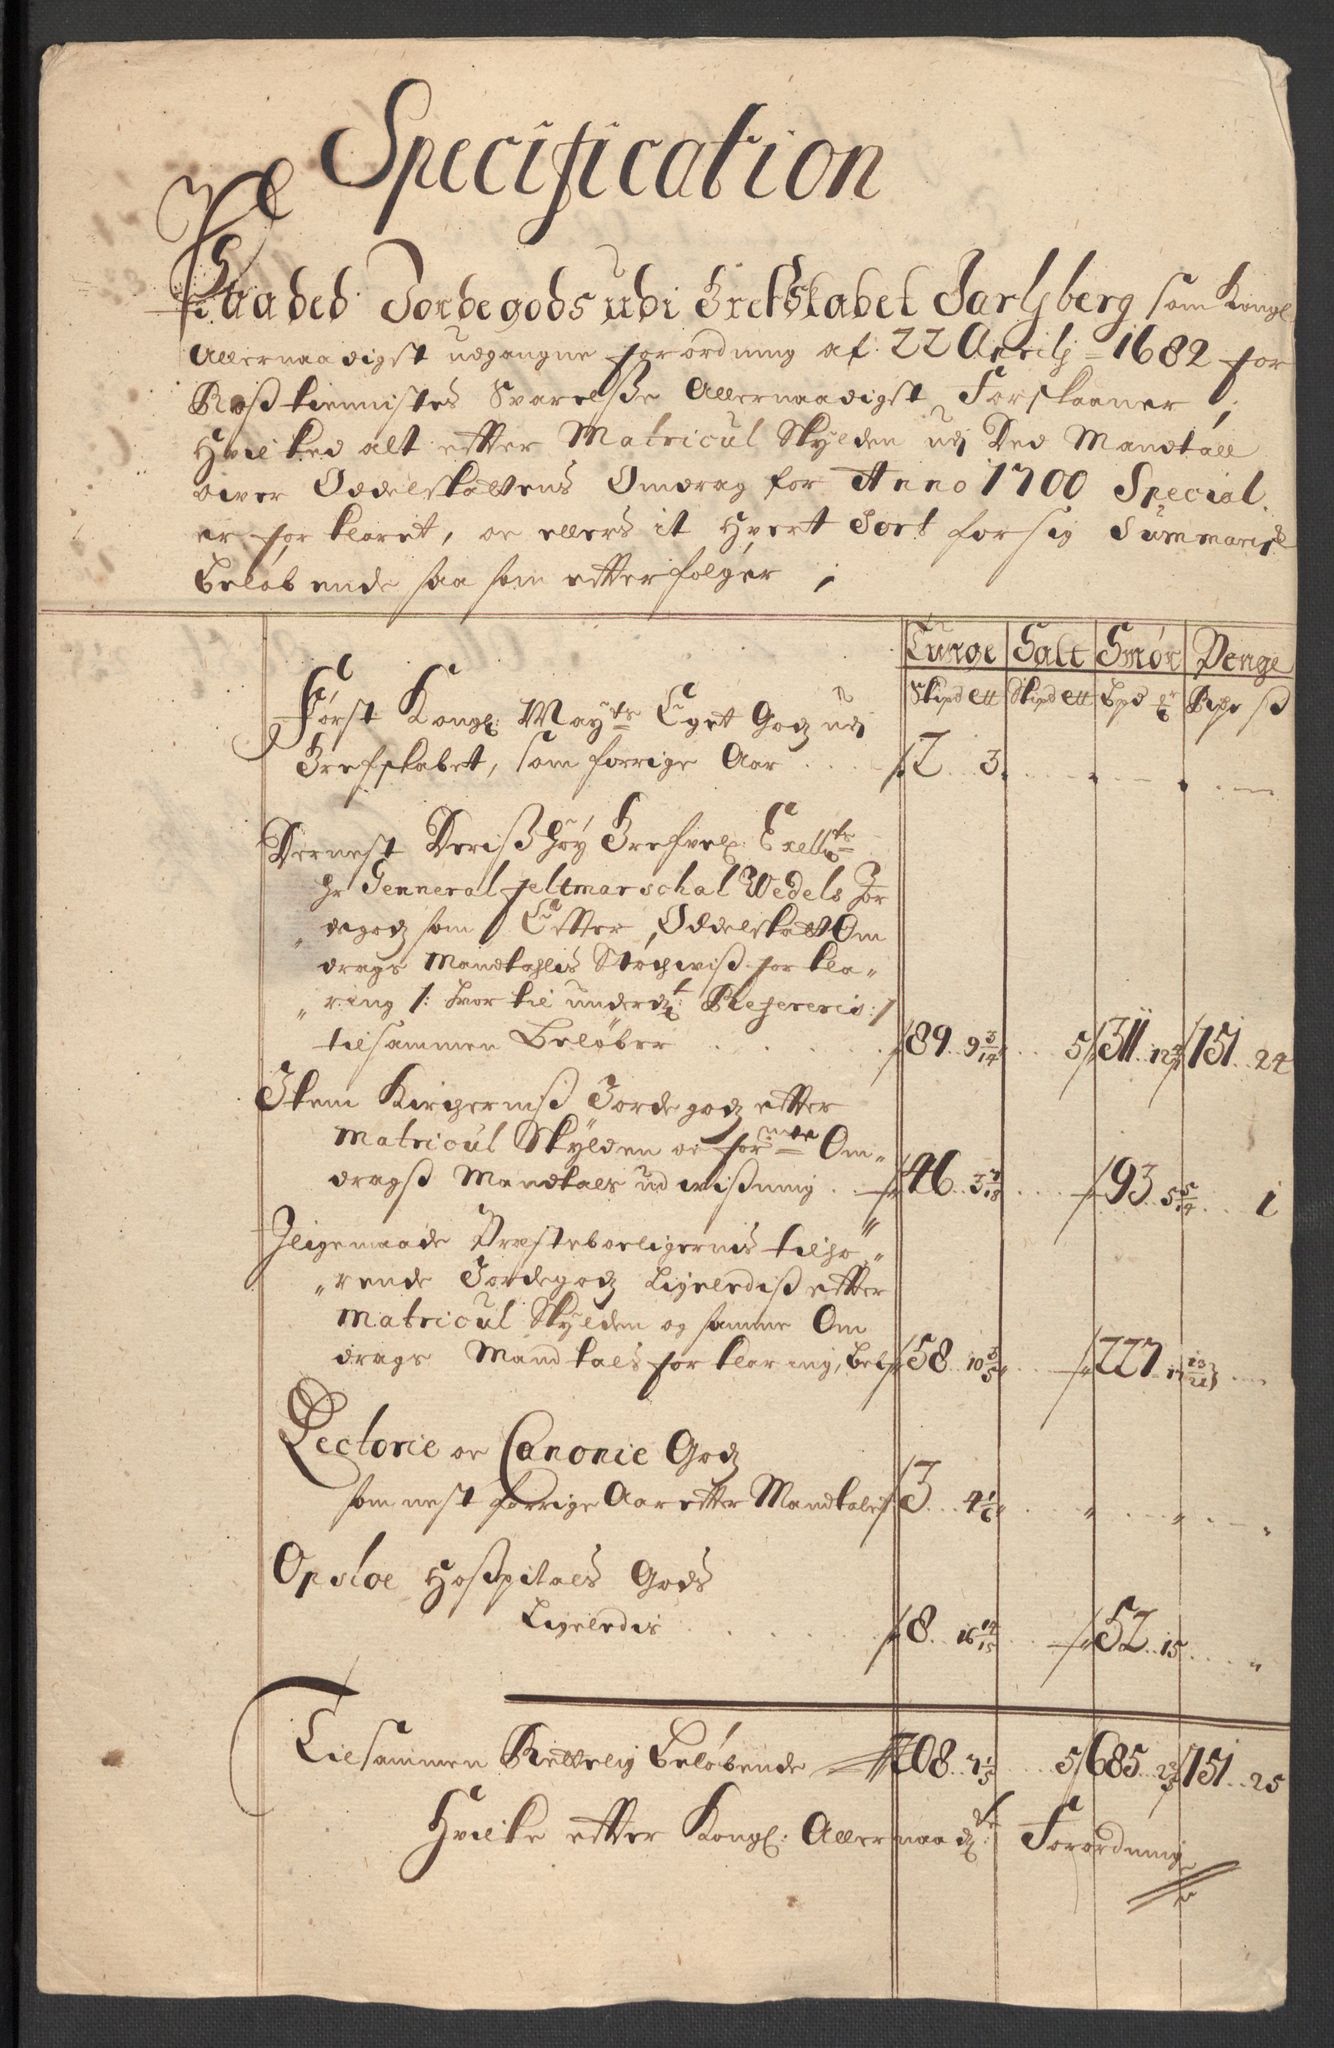 Specification
Paa ded Jordegods udi Grefskabet Jarlsberg som Kongl:
Allernaadigst udgangne forordning af 22 Aprilj 1682 for
Rosstiennistes Svarelsse Allernaadigst Forskaaner;
Hvilked alt efter Matricul Skÿlden udj Ded Mandtall
over Oddelskattens Omdrag for Anno 1700 Special.
er forklaret, oc ellers it Hvert Sort for sig Summarisk
beløbende saa som efterfølger;
Tunge Salt Smør Penge
Skipd ltt Skipd ltt Bpd Rixr ß
Først Kongl: Mayts Eget Godz udj
Grefskabet, som forrige Aar 2 3
Dernest Deriss Høy Grefvel: Exellts
Hr Genneral feltmarschal Wedels Jor
degodz som Effter Oddelskatt Om
drags Mandtahlis Støchviss forkla-
ring /: hvortil underdt: Refereris :/
tilsammen Beløber 89 9 3/14 5 311 12 151 24
Item Kirchernis Jordegodz efter
Matricul Skÿlden oc formte Om-
dragss Mandtals udvissning 46 3 93 5 5/14 1
Jligemaade Præsteboeligernis tilhø-
rende Jordegodz ligeledis efter
Matricul Skÿlden og samme Om
drags Mandtals forklaring, bel: 58 10 3/5 227 17 13/21
Lectorie oc Canonie Godz
som nest forrige Aar efter Mandtalet 3 4 1/6
Opsloe Hosspitals Gods
Ligeledis 8 16 14/15 52 15
Tilsammen Rettelig beløbende 208 7 1/5 5 685 2 151 25
Hvilke efter Kongl: Allernaadt: Forordning